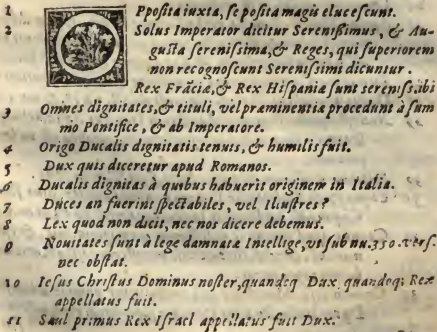 1 OPposita iuxta, se posita magis elucescunt.
2 Solus Imperator dicitur Serenissimus, & Au-
gusta serenissima, & Reges, qui superiorem
non recognoscunt Serenissimi dicuntur.
Rex Frãciæ, & Rex Hispaniæ sunt sereniss. ibi
3 Omnes dignitates, & tituli, vel præminentia procedunt à sum
mo Pontifice, & ab Imperatore.
4 Origo Ducalis dignitatis tenuis, & humilis fuit.
5 Dux quis diceretur apud Romanos.
6 Ducalis dignitas à quibus habuerit originem in Italia.
7 Duces an fuerint spectabiles, vel Ilustres?
8 Lex quod non dicit, nec nos dicere debemus.
9 Nouitates sunt à lege damnatæ Intellige, vt sub nu. 350. vers.
nec obstat.
10 Iesus Christus Dominus noster, quandoq; Dux quandoq; Rex
appellatus fuit.
11 Saul primus Rex Israel appellatus fuit Dux.